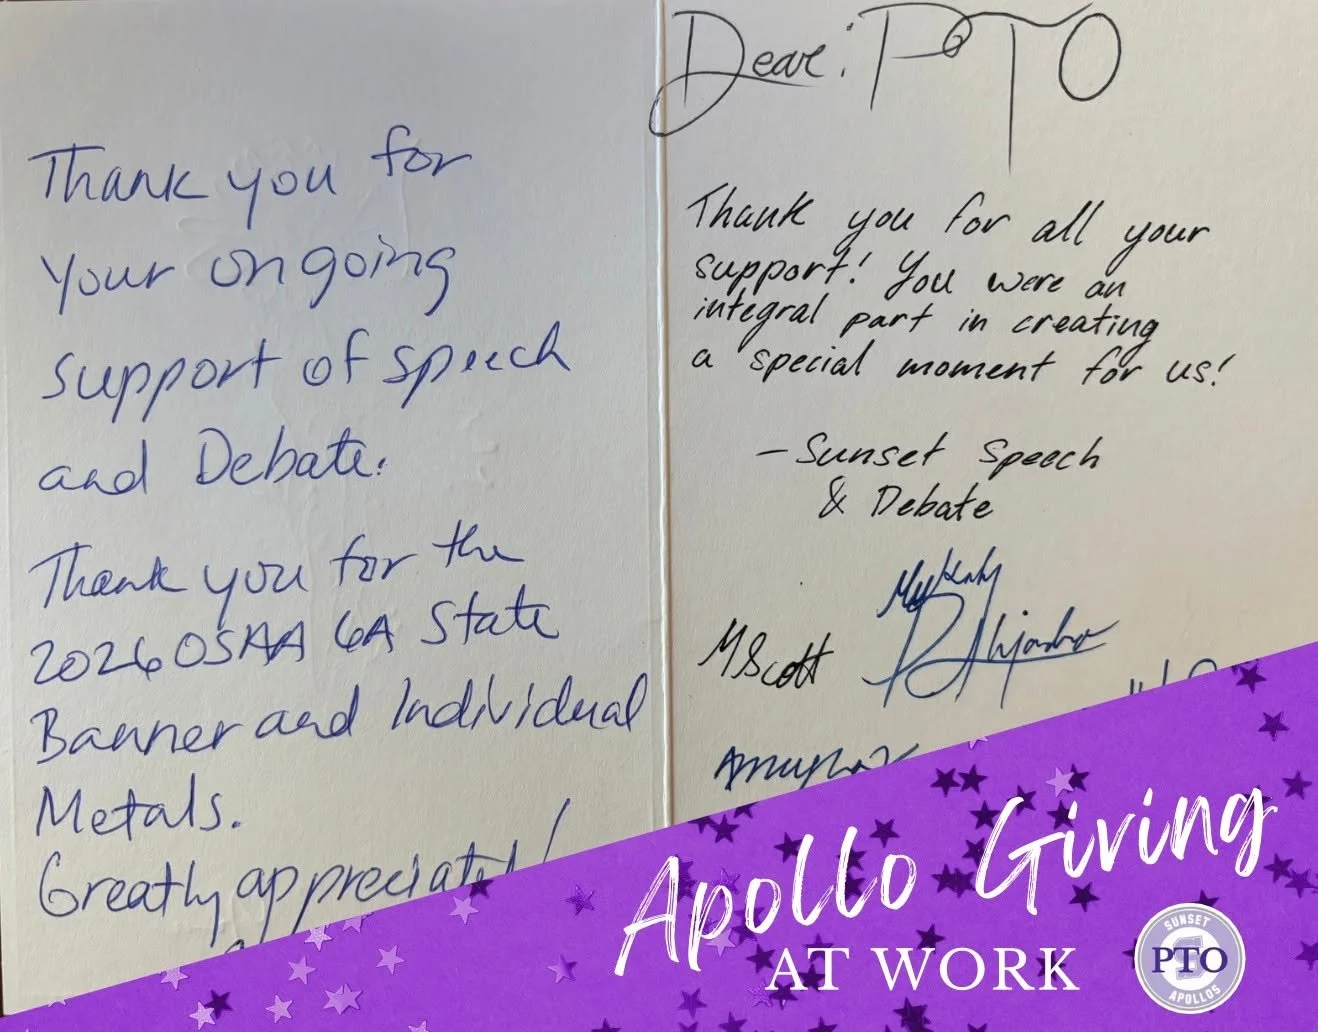 Thank you for
your ongoing
support of speech
and Debate.
Thank you for the
2026 OSAA 6A State
Banner and Individual
Metals.
Greatly appreciated!
Dear: PTO
Thank you for all your
support! You were an
integral part in creating
a special moment for us!
– Sunset Speech
& Debate
MScott
Apollo Giving
AT WORK
SUNSET
PTO
APOLLOS